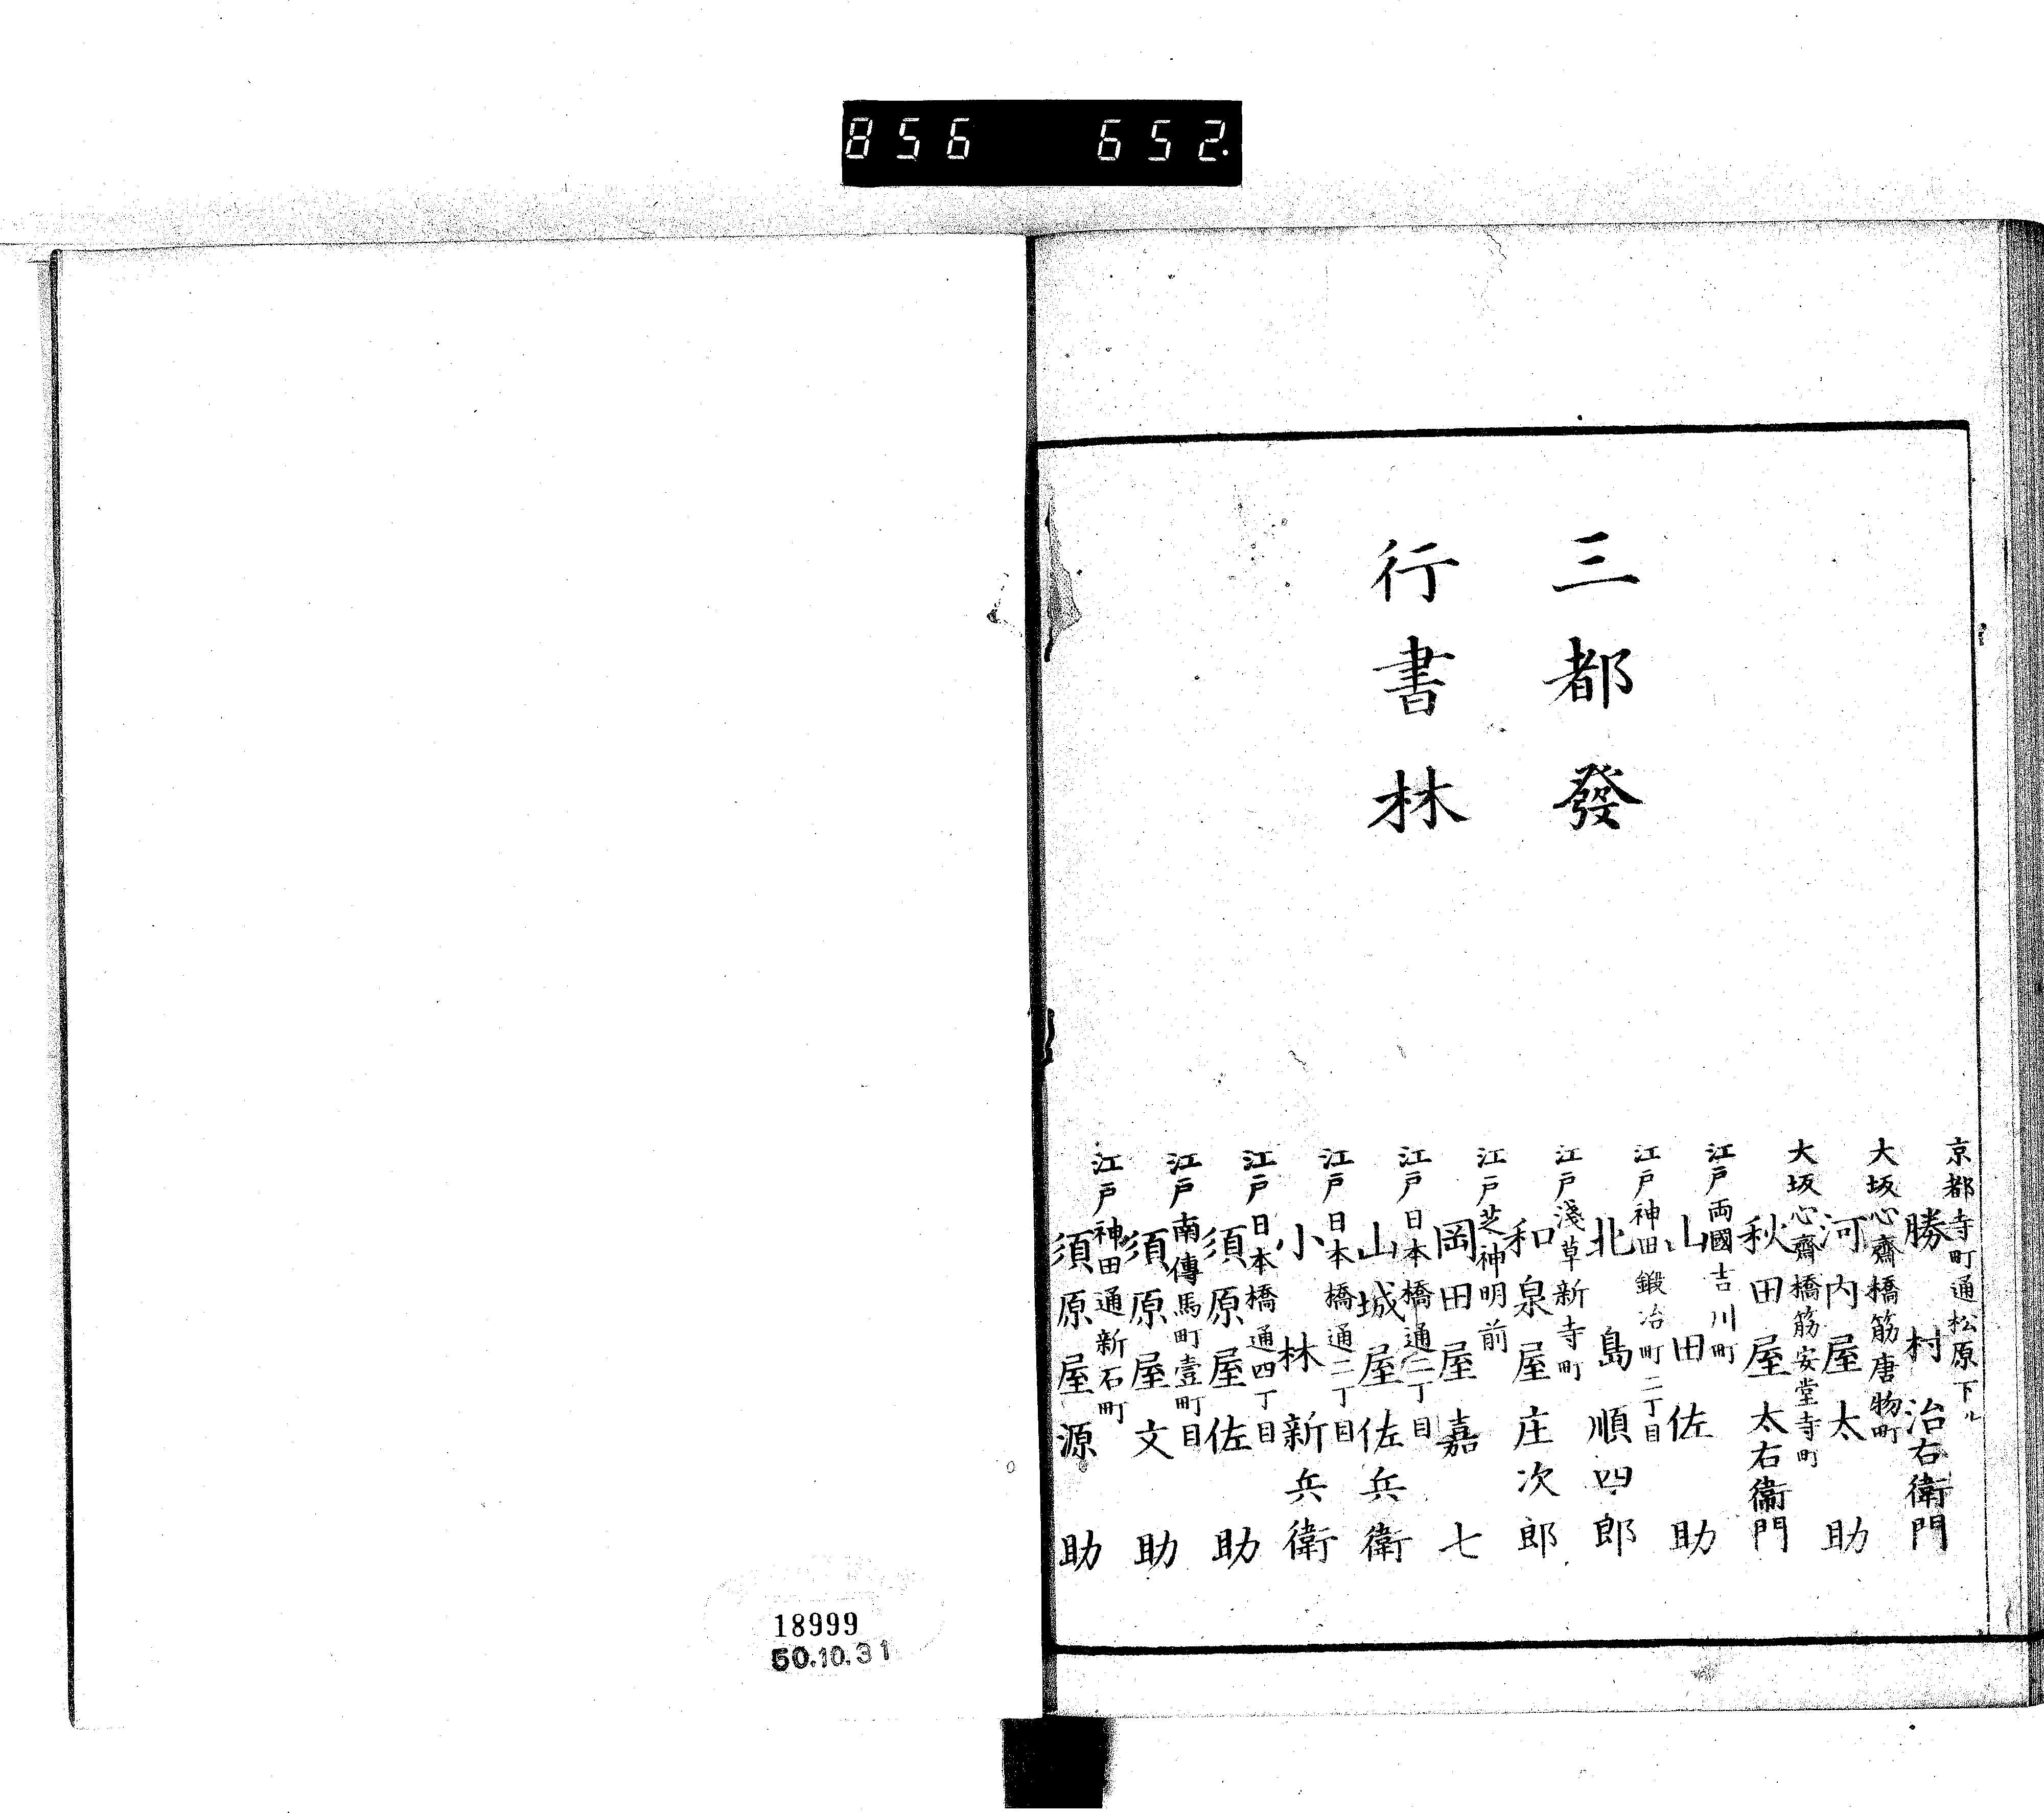 856 652.
三都發
行書林
京都寺町通松原下ル
勝村治右衛門
大坂心齋橋筋唐物町
河内屋太助
大坂心齋橋筋安堂寺町
秋田屋太右衛門
江戸両國吉川町
山田佐助
江戸神田鍛冶町二丁目
北島順四郎
江戸淺草新寺町
和泉屋庄次郎
江戸芝神明前
岡田屋嘉七
江戸日本橋通二丁目
山城屋佐兵衛
江戸日本橋通二丁目
小林新兵衛
江戸日本橋通四丁目
須原屋佐助
江戸南傳馬町壹町目
須原屋文助
江戸神田通新石町
須原屋源助
18999
50.10.31